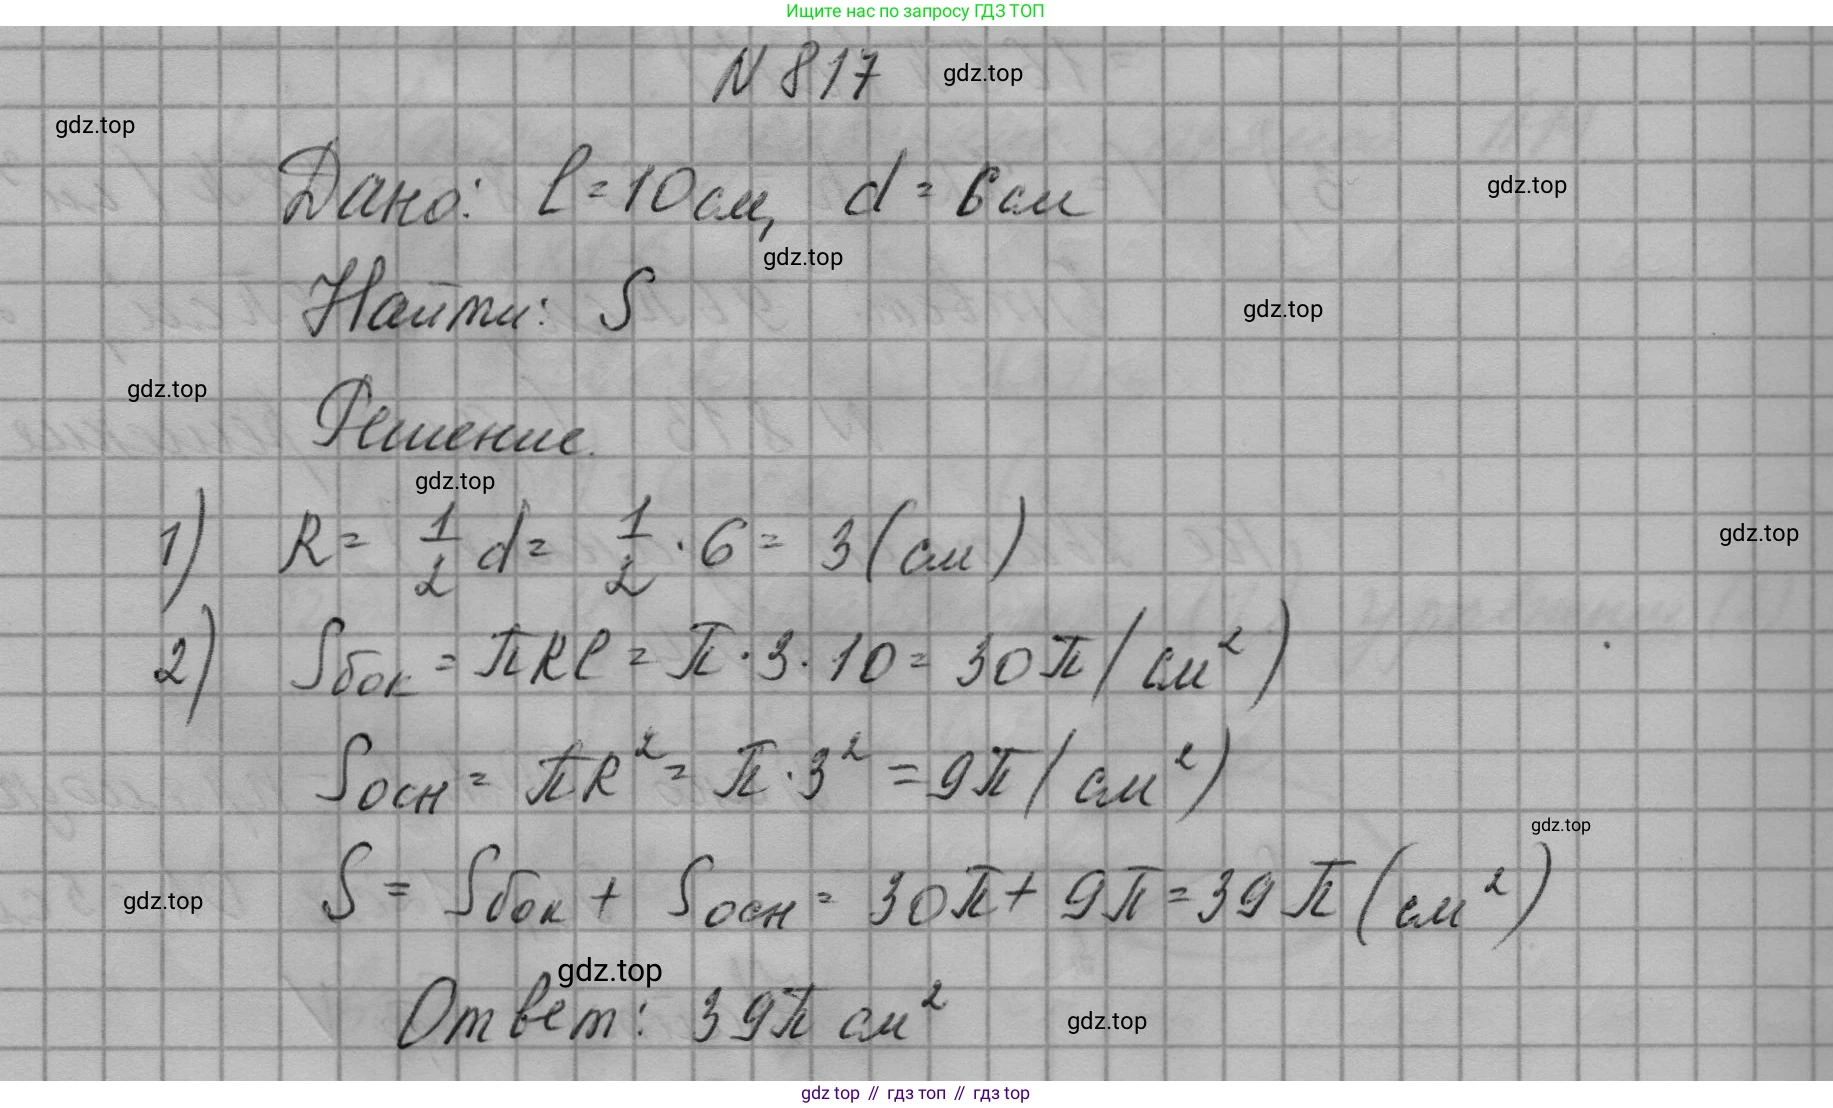 Ищите нас по запросу ГДЗ ТОП
N 817
gdz.top
gdz.top
Дано: l = 10 см, d = 6 см
gdz.top
gdz.top
Найти: S
gdz.top
gdz.top
Решение.
gdz.top
1) R = 1/2 d = 1/2 · 6 = 3 (см)
gdz.top
2) Sбок = πRl = π · 3 · 10 = 30π (см²)
Sосн = πR² = π · 3² = 9π (см²)
gdz.top
S = Sбок + Sосн = 30π + 9π = 39π (см²)
gdz.top
gdz.top
Ответ: 39π см²
gdz.top
gdz top // гдз топ // гдз top